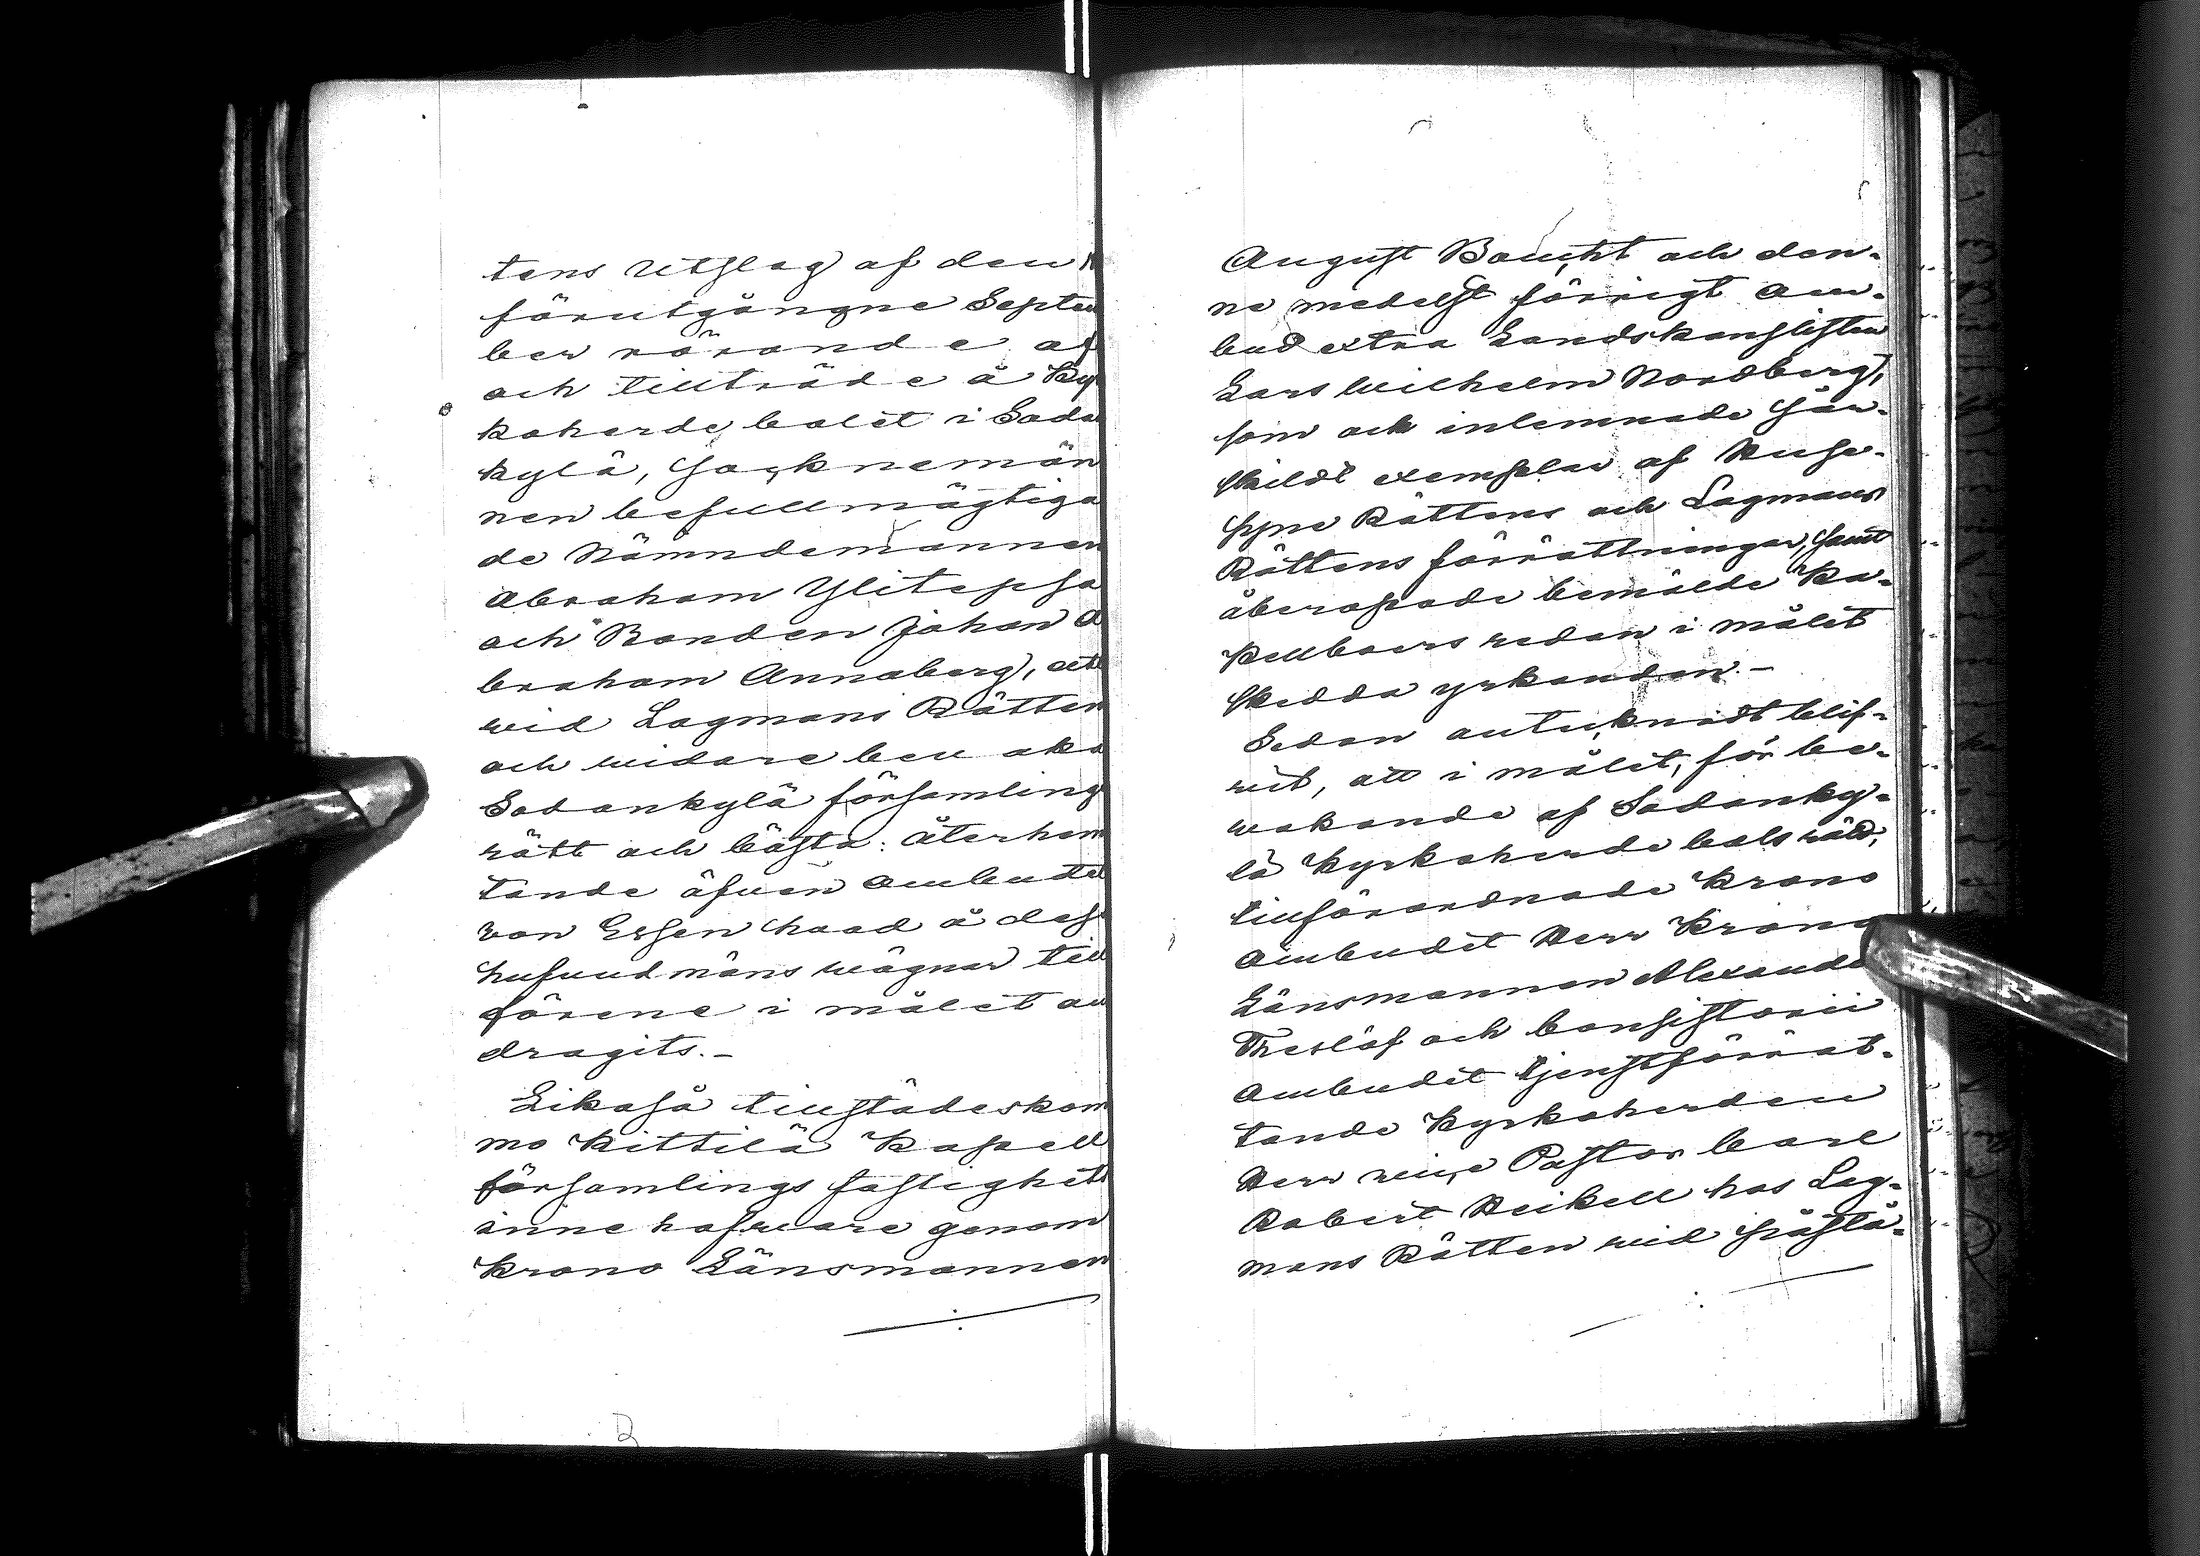 tens Utslag af den
förutgångne Septem
ber rörande af
och tillträde å Kyr
koherde bolet i Soda
kylä, Socknemän
nen befullmägtiga
de Nämndemannen
Abraham Ylitepsa
och Bonden Johan A
braham Annaberg, att
wid Lagmans Rätten
och widare bewaka
Sodankylä församlings
rätt och bästa: återhem
tande äfwen Ombudet
von Essen hwad å dess
hufwudmäns wägnar till
förene i målet an
dragits.—
Likaså tillstädeskom
mo Kittilä Kapell
församlings fastighets
innehafware genom
Krono Länsmannen
AugustBoucht och den-
ne medelst förrigt Om-
bud extra Landskanslisten
Lars Wilhelm Nordberg,
som ock inlemnade sär-
skildt exemplar af Huse-
syne Rättens och Lagmans
Rättens förrättningar, samt
åberopade bemälde Ka-
pellboers redan i målet
skedda yrkanden.—
Sedan antecknadt blif-
wit, att i målet, för be-
wakande af Sodanky-
lä Kyrkoherde bols rätt,
tillförordnade Krono
Ombudet Herr Krono
Länsmannen Alexander
Theslöf och Consistorii
Ombudet tjenstförrät-
tande Kyrkoherden
Herr vice Pastor Carl
Robert Heikell hos Lag-
mans Rätten wid sistlä-